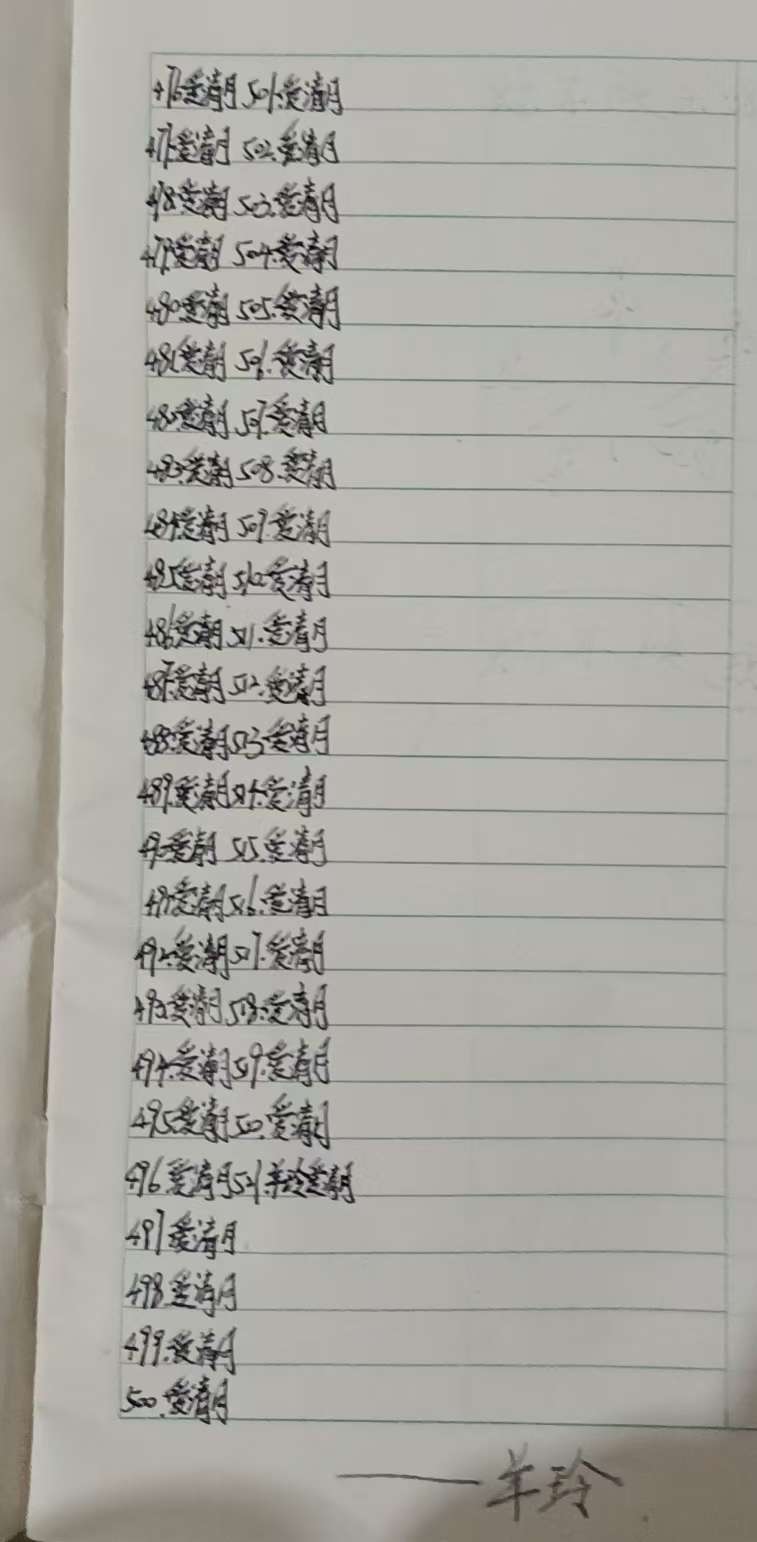 476爱清月 501.爱清月
477.爱清月 502.爱清月
478.爱清月 503.爱清月
479.爱清月 504.爱清月
480.爱清月 505.爱清月
481.爱清月 506.爱清月
482.爱清月 507.爱清月
483.爱清月 508.爱清月
484.爱清月 509.爱清月
485.爱清月 510.爱清月
486.爱清月 511.爱清月
487.爱清月 512.爱清月
488.爱清月 513.爱清月
489.爱清月 514.爱清月
490.爱清月 515.爱清月
491.爱清月 516.爱清月
492.爱清月 517.爱清月
493.爱清月 518.爱清月
494.爱清月 519.爱清月
495.爱清月 520.爱清月
496.爱清月 521.羊玲爱清月
497爱清月
498.爱清月
499.爱清月
500.爱清月
——羊玲